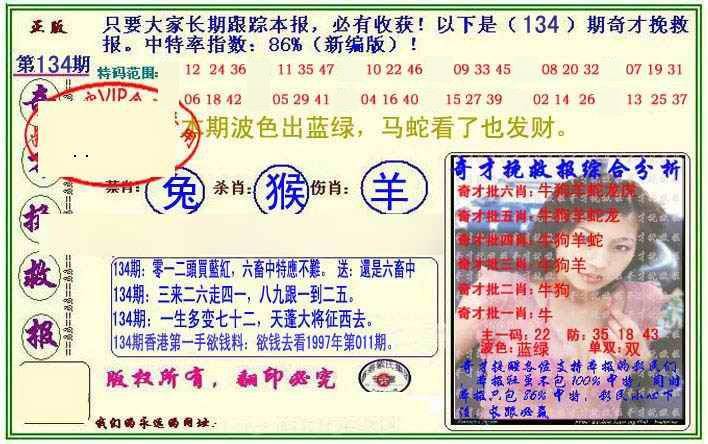 正版
只要大家长期跟踪本报，必有收获！以下是（134）期奇才挽救
报。中特率指数：86%（新编版）！
第134期
特码范围：
12 24 36 11 35 47 10 22 46 09 33 45 08 20 32 07 19 31
06 18 42 05 29 41 04 16 40 15 27 39 02 14 26 13 25 37
VIP会
用
本期波色出蓝绿，马蛇看了也发财。
禁肖：兔 杀肖：猴 伤肖：羊
奇
挽
救
报
134期：零一二頭買藍紅，六畜中特應不難。 送：還是六畜中
134期：三来二六走四一，八九跟一到二五。
134期：一生多变七十二，天蓬大将征西去。
134期香港第一手欲钱料：欲钱去看1997年第011期。
版权所有，翻印必究
我们的永远的网址：
奇才挽救报综合分析
奇才批六肖：牛狗羊蛇龙
奇才批五肖：牛狗羊蛇龙
奇才批四肖：牛狗羊蛇
奇才批三肖：牛狗羊
奇才批二肖：牛狗
奇才批一肖：牛
主一码：22 防：35 18 43
波色：蓝绿 单双：双
奇才挽救各位支持本报的彩民们
本报往虽不包100%中特，同时
本报只包86%中特，彩民小心下
注